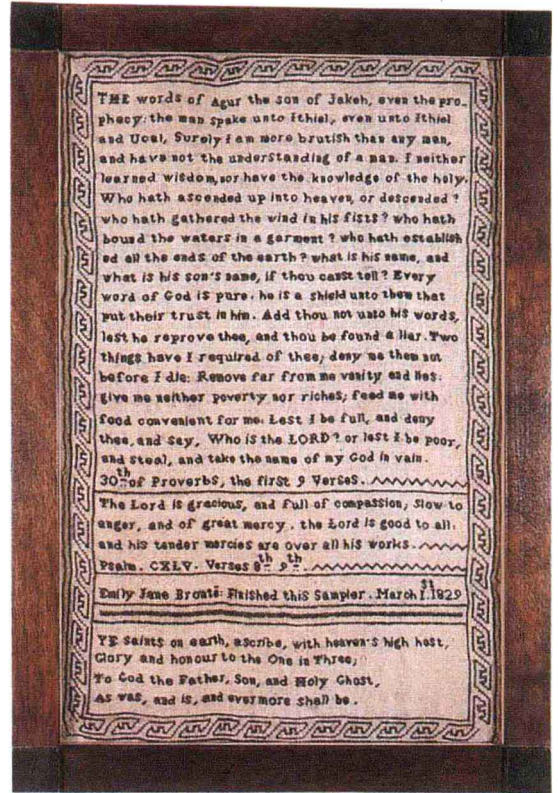 THE words of Agur the son of Jakeh, even the pro-
phecy: the man spake unto Ithiel, even unto Ithiel
and Ucal, Surely I am more brutish than any man,
and have not the understanding of a man. I neither
learned wisdom, nor have the knowledge of the holy.
Who hath ascended up into heaven, or descended?
who hath gathered the wind in his fists? who hath
bound the waters in a garment? who hath establish
ed all the ends of the earth? what is his name, and
what is his son's name, if thou canst tell? Every
word of God is pure. he is a shield unto them that
put their trust in him. Add thou not unto his words,
lest he reprove thee, and thou be found a liar. Two
things have I required of thee; deny me them not
before I die: Remove far from me vanity and lies:
give me neither poverty nor riches; feed me with
food convenient for me. Lest I be full, and deny
thee, and say, Who is the LORD? or lest I be poor,
and steal, and take the name of my God in vain.
30th of Proverbs, the first 9 Verses.
The Lord is gracious, and full of compassion; slow to
anger, and of great mercy. the Lord is good to all:
and his tender mercies are over all his works.
Psalm. CXLV. Verses 8th 9th.
Emily Jane Brontë: Finished this Sampler. March 1st 1829
YE saints on earth, ascribe, with heaven's high host,
Glory and honour to the One in Three;
To God the Father, Son, and Holy Ghost,
As was, and is, and evermore shall be.